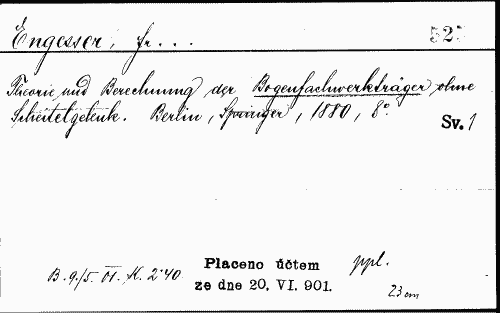 Engesser, Fr...
527
Theorie und Berechnung der Bogenfachwerkträger ohne
Scheitelgelenk. Berlin, Springer, 1880, 8°.
Sv. 1
Placeno účtem
ppl.
B. 9./5. 01. K. 2·40
ze dne 20. VI. 901.
23 cm